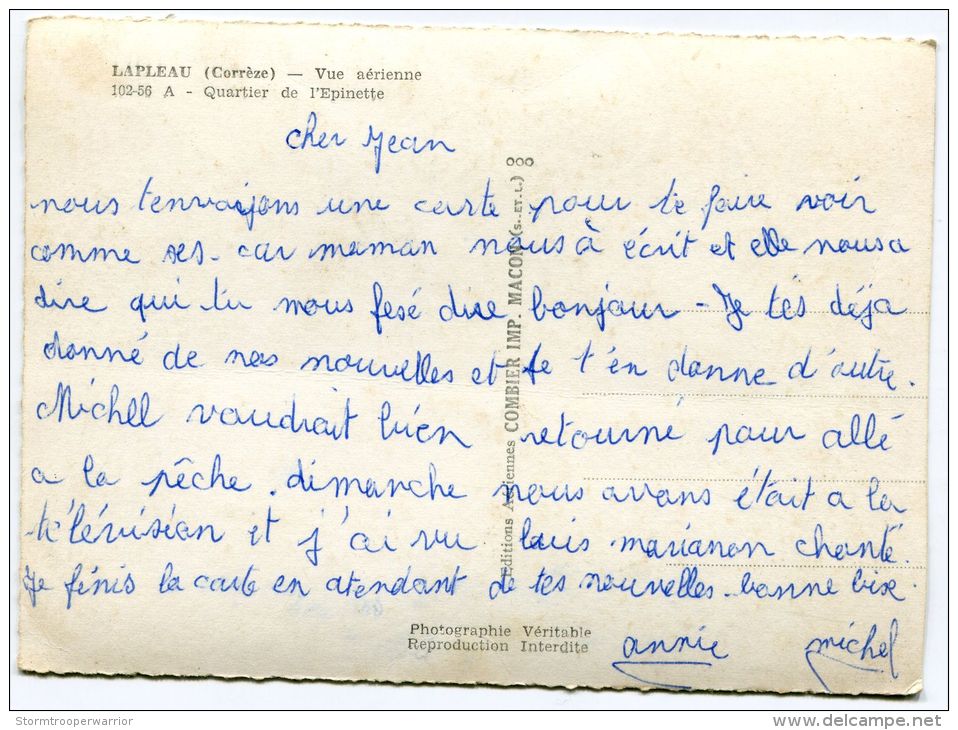 LAPLEAU (Corrèze) — Vue aérienne
102-56 A - Quartier de l'Epinette
cher Jean
nous t'envoijons une carte pour te faire voir
comme ses. car maman nous à écrit et elle nous a
dire qui tu nous fesé dire bonjour - Je t'és déja
donné de nos nouvelles et je t'én donne d'autre.
Michel voudrait bien retourné pour allé
a la pêche. dimanche nous avons était a la
télévision et j'ai vu luis marianon chanté.
Je finis la carte en atendant de tes nouvelles. bonne bise
annie michel
Editions Aériennes COMBIER IMP. MACON (S.-ET-L.) ooo
Photographie Véritable
Reproduction Interdite
Stormtrooperwarrior
delcampe.net